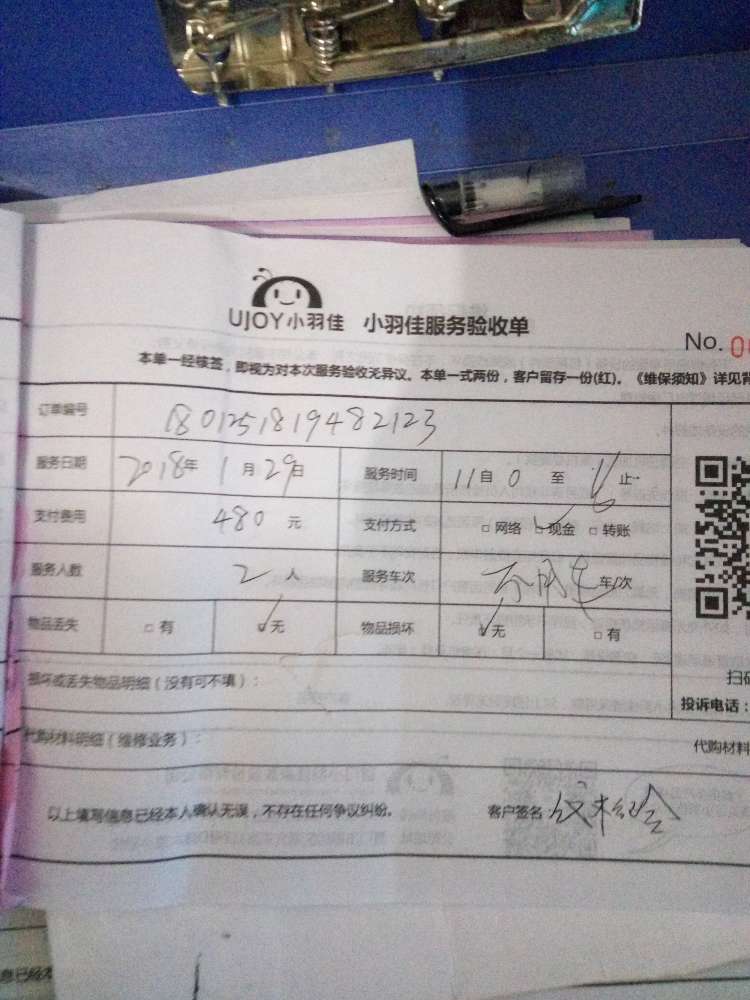 UJOY小羽佳 小羽佳服务验收单
No. 0
本单一经核签，即视为对本次服务验收无异议。本单一式两份，客户留存一份(红)。《维保须知》详见背
订单编号 1801251819482123
服务日期 2018年 1月29日 服务时间 11自0至 止
支付费用 480元 支付方式 □网络 ✓现金 □转账
服务人数 2人 服务车次 不用车 车/次
物品丢失 □有 ✓无 物品损坏 ✓无 □有
损坏或丢失物品明细（没有可不填）：
扫码
投诉电话：
代购材料明细（维修业务）：
代购材料
以上填写信息已经本人确认无误，不存在任何争议纠纷。 客户签名：